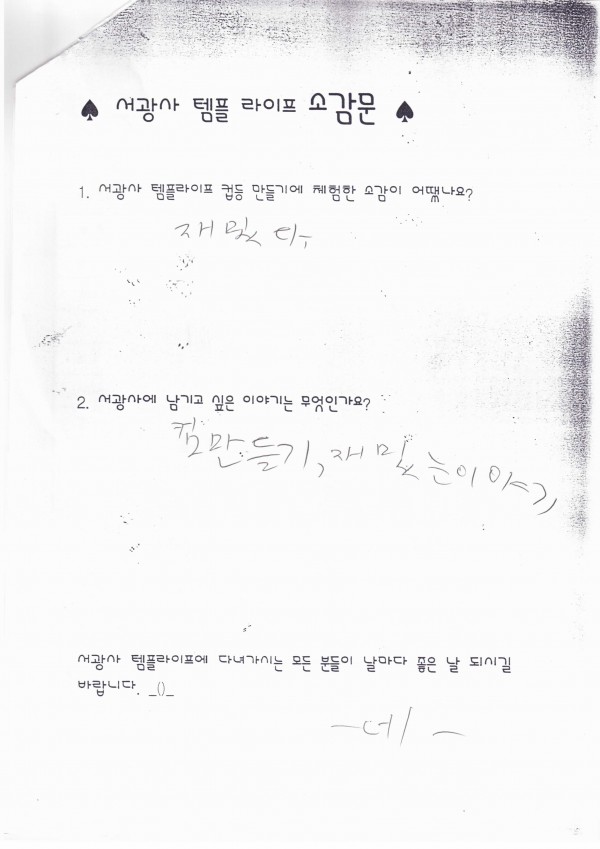 ♠ 서광사 템플 라이프 소감문 ♠
1. 서광사 템플라이프 컵등 만들기에 체험한 소감이 어땠나요?
재밌다
2. 서광사에 남기고 싶은 이야기는 무엇인가요?
컵만들기, 재밌는이야기
서광사 템플라이프에 다녀가시는 모든 분들이 날마다 좋은 날 되시길
바랍니다. _()_